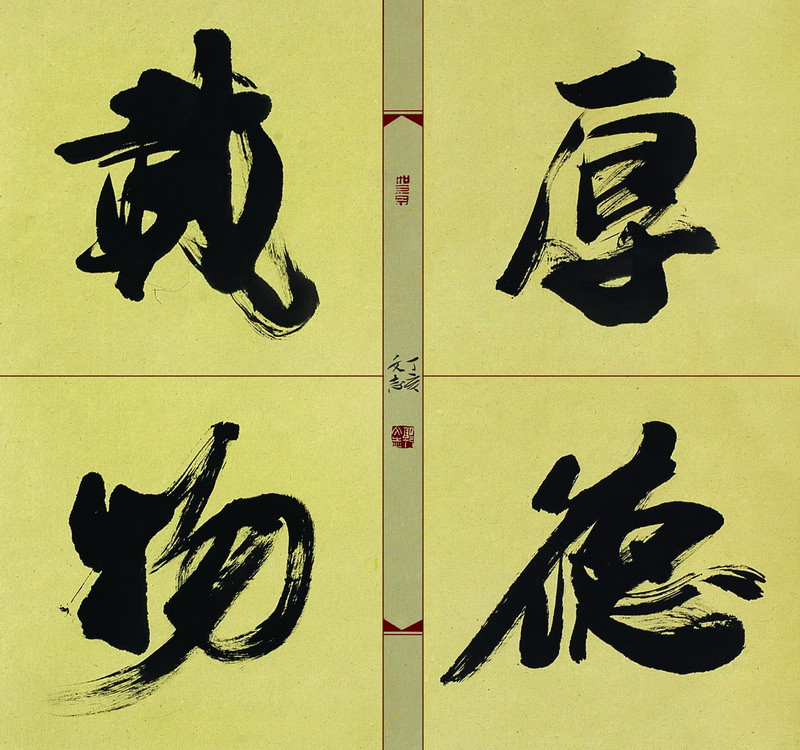 厚德
载物
丁亥
文志